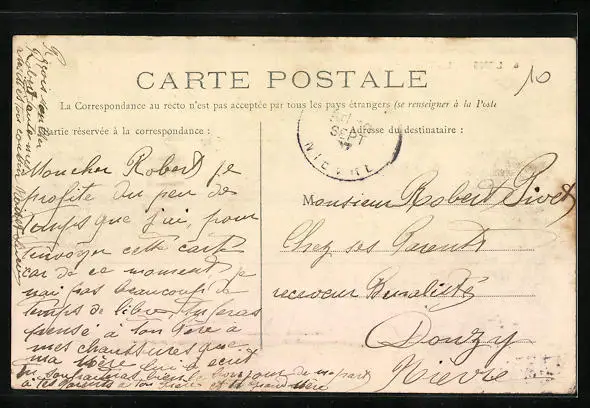 CARTE POSTALE
La Correspondance au recto n'est pas acceptée par tous les pays étrangers (se renseigner à la Poste
Partie réservée à la correspondance :
Mon cher Robert je
profite du peu de
temps que j'ai, pour
t'envoyer cette carte
car de ce moment je
n'ai pas beaucoup de
temps de libre. Tu feras
pensé à ton Père à
mes chaussures que
ma Mère lui a écrit
Tu souhaiteras bien le bonjour de ma part
à tes Parents à ton frère et ta grand Mère
Reçois mon cher
Robert
Adresse du destinataire :
Monsieur Robert Pivet
Chez ses Parents
receveur Buraliste
Donzy
Nièvre
SEPT
NIEVRE
10